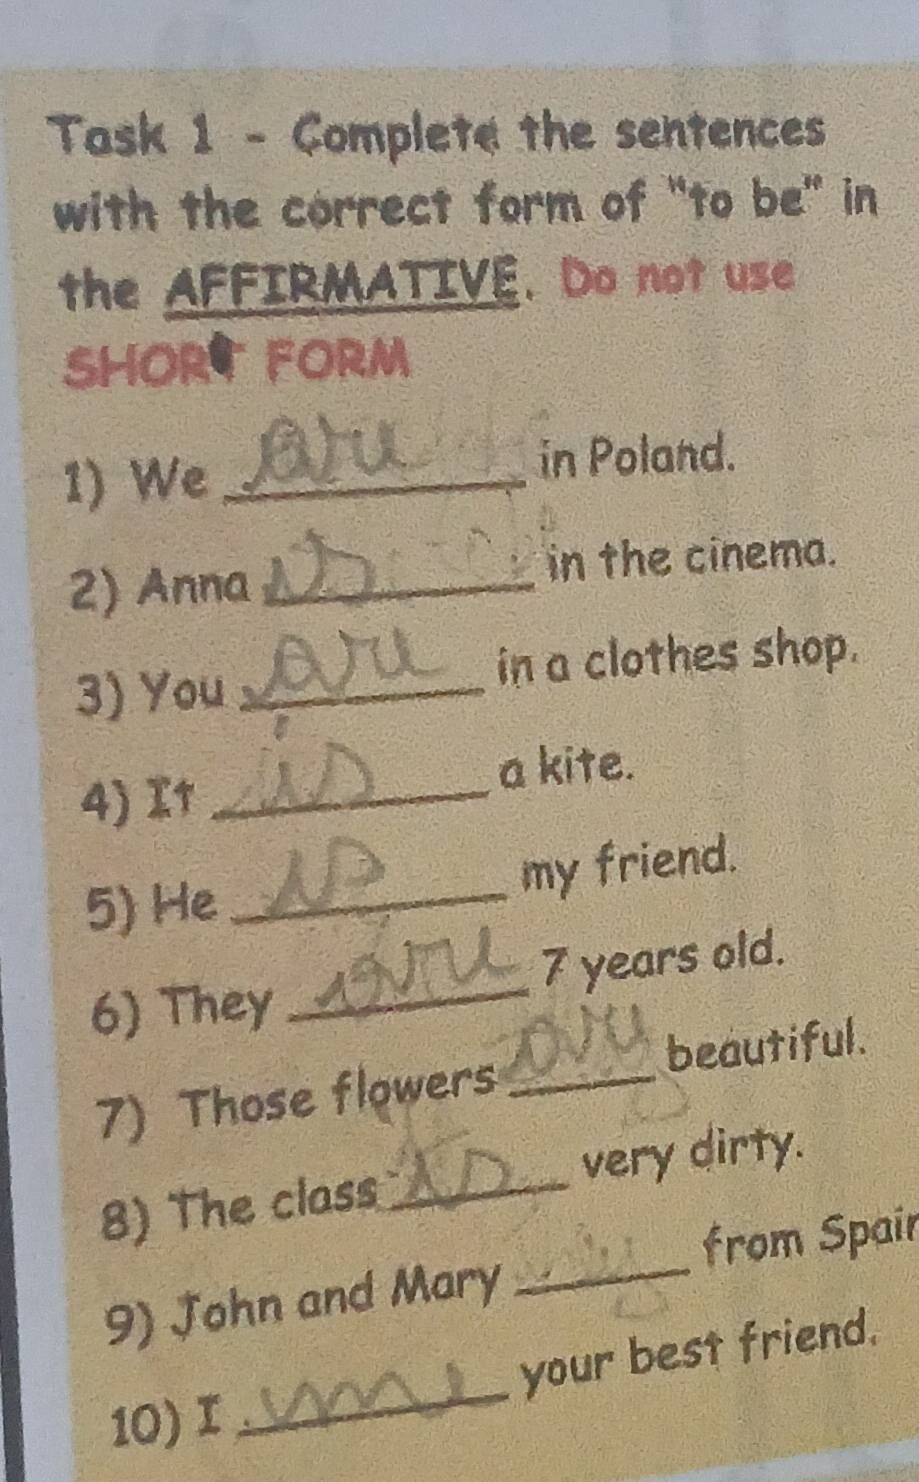 Task 1 - Complete the sentences
with the correct form of "to be" in
the AFFIRMATIVE. Do not use
SHORT FORM
1) We are in Poland.
2) Anna is in the cinema.
3) You are in a clothes shop.
4) It is a kite.
5) He is my friend.
6) They are 7 years old.
7) Those flowers ____ beautiful.
8) The class is very dirty.
9) John and Mary ____ from Spain
10) I ____ your best friend.